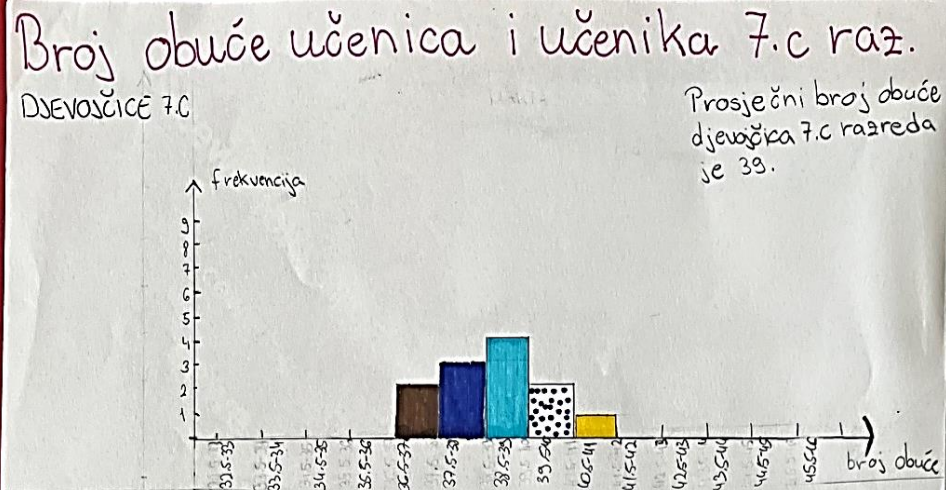 Broj obuće učenica i učenika 7.c raz.
DJEVOJČICE 7.C
Prosječni broj obuće
djevojčica 7.c razreda
je 39.
frekvencija
9
8
7
6
5
4
3
2
1
32.5-33
33.5-34
34.5-35
35.5-36
36.5-37
37.5-38
38.5-39
39.5-40
40.5-41
41.5-42
42.5-43
43.5-44
44.5-45
45.5-46
broj obuće